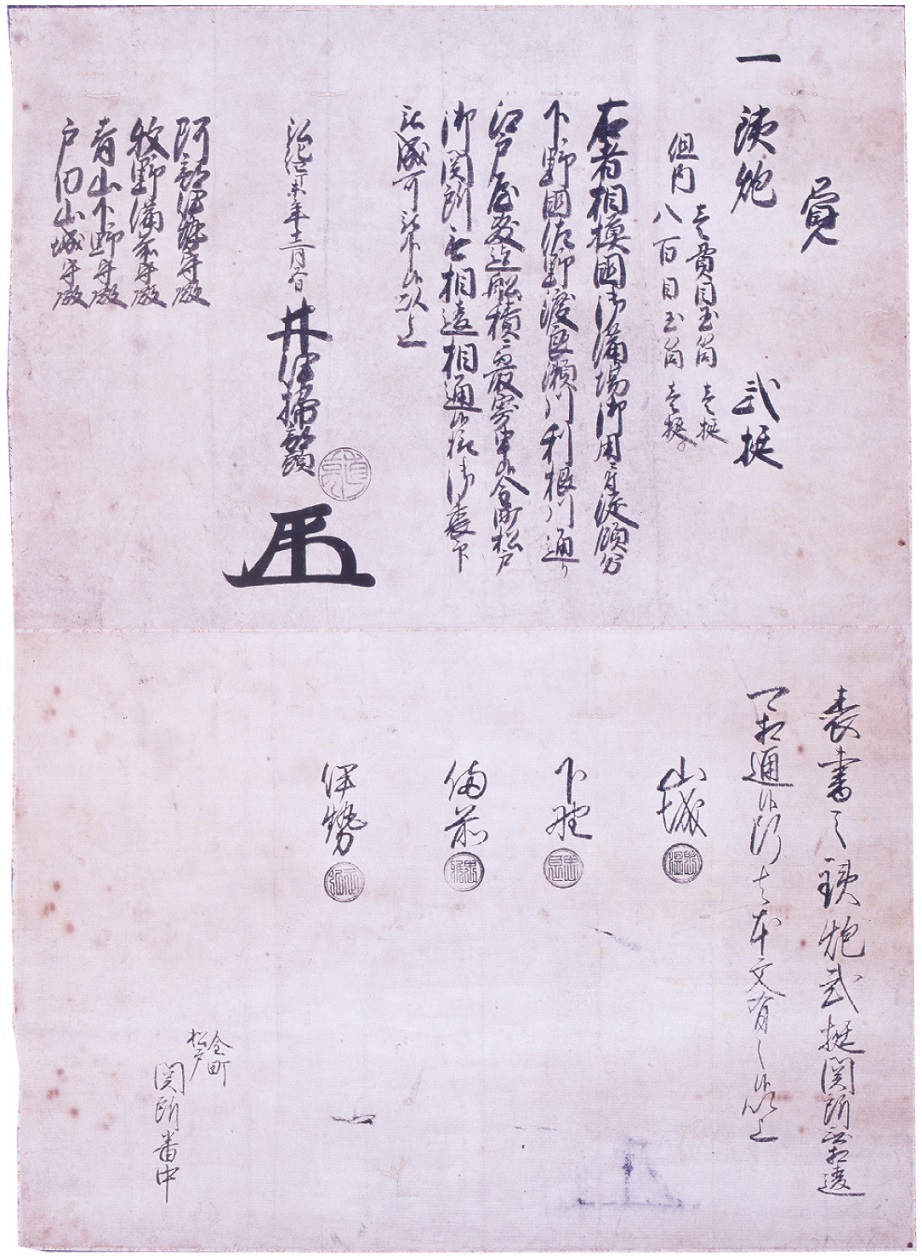 覚
一 鉄炮 弐挺
但内 壱貫目玉筒 壱挺
八百目玉筒 壱挺
右者相模国御備場御用ニ付従領分
下野国佐野渡良瀬川利根川通り
江戸屋敷迄船積ニ而取寄申候金町松戸
御関所無相違相通候様御裏印
被成可被下候以上
井伊掃部頭
阿部伊勢守殿
牧野備前守殿
青山下野守殿
戸田山城守殿
表書之鉄炮弐挺関所無相違
可相通候断者本文有之候以上
山城
下野
備前
伊勢
金町
松戸
関所番中